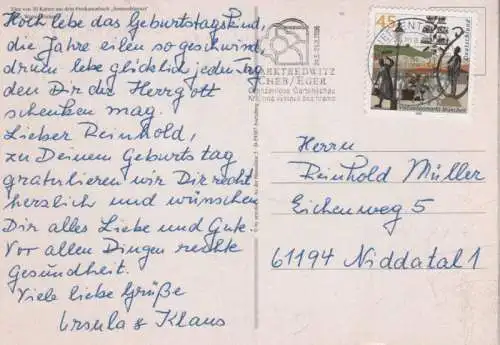 Eine von 30 Karten aus dem Postkartenbuch „Sonnenblumen“
Hoch lebe das Geburtstagskind,
die Jahre eilen so geschwind,
drum lebe glücklich jeden Tag
den Dir der Herrgott
schenken mag.
Lieber Reinhold,
zu Deinem Geburtstag
gratulieren wir Dir recht
herzlich und wünschen
Dir alles Liebe und Gute.
Vor allen Dingen rechte
Gesundheit.
Viele liebe Grüße
Ursula & Klaus
MARKTREDWITZ
CHEB/EGER
Grenzenlose Gartenschau
45
Deutschland
Viktualienmarkt München
Herrn
Reinhold Müller
Eichenweg 5
61194 Niddatal 1